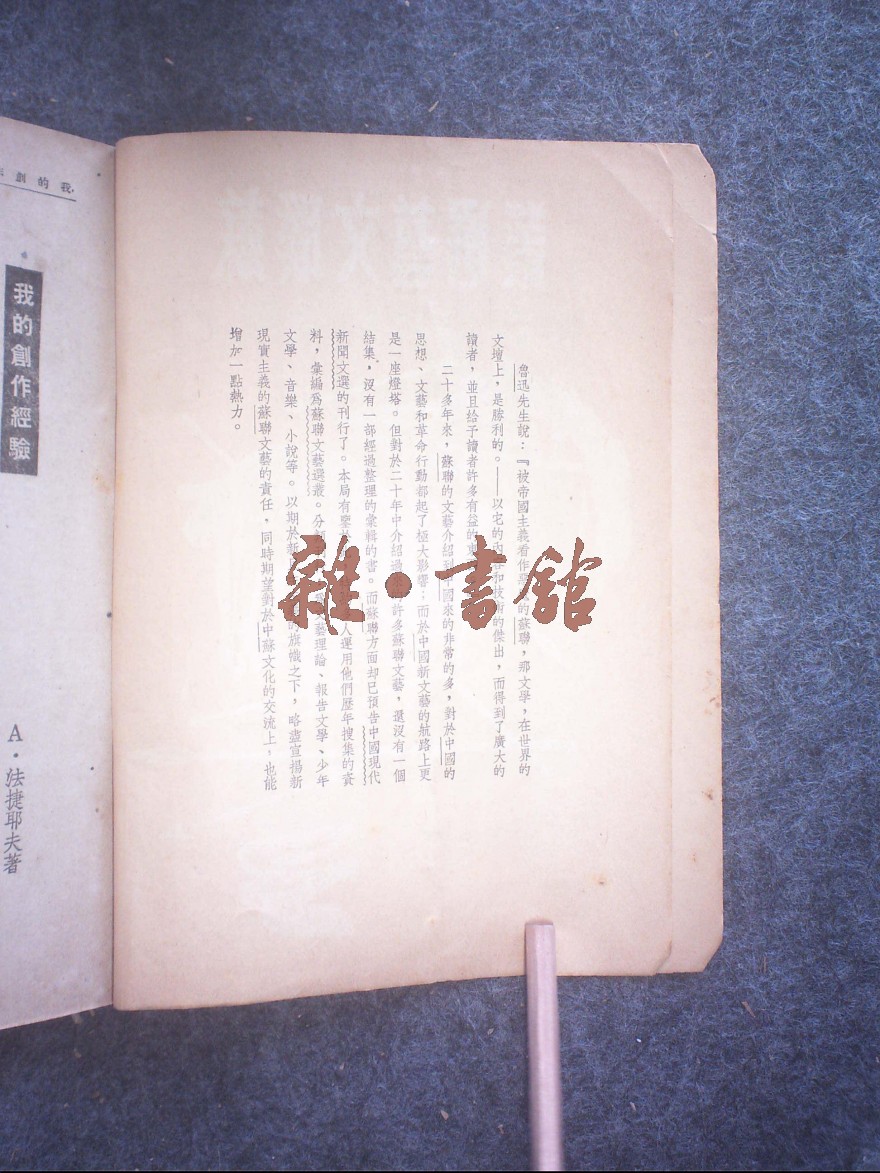 魯迅先生說：『被帝國主義看作的蘇聯，那文學，在世界的
文壇上，是勝利的。——以它的和技的傑出，而得到了廣大的
讀者，並且給予讀者許多有益的
二十多年來，蘇聯的文藝介紹到中國來的非常的多，對於中國的
思想、文藝和革命行動都起了極大影響；而於中國新文藝的航路上更
是一座燈塔。但對於二十年中介紹過許多蘇聯文藝，還沒有一個
結集，沒有一部經過整理的彙輯的書。而蘇聯方面却已預告中國現代
新聞文選的刊行了。本局有鑒於人運用他們歷年搜集的資
料，彙編爲蘇聯文藝選叢。分藝理論、報告文學、少年
文學、音樂、小說等。以期於新的旗幟之下，略盡宣揚新
現實主義的蘇聯文藝的責任，同時期望對於中蘇文化的交流上，也能
增加一點熱力。
我的創
我的創作經驗
A·法捷耶夫著
雜·書館